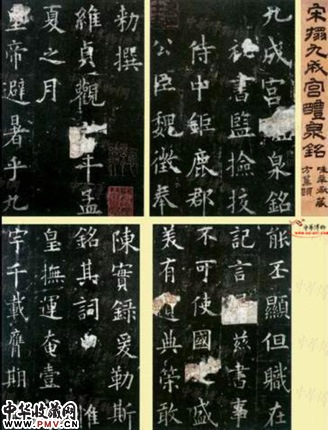 宋搨九成宮醴泉銘
九成宮泉銘
秘書監撿挍
侍中鉅鹿郡
公臣魏徵奉
勑撰
維貞觀年孟
夏之月
皇帝避暑乎九
能丕顯但職在
記言茲書事
不可使國之盛
美有典策敢
陳實錄爰勒斯
銘其詞曰惟
皇撫運奄壹
宇千載膺期
中华博物
中华收藏网
WWW.PMV.CN